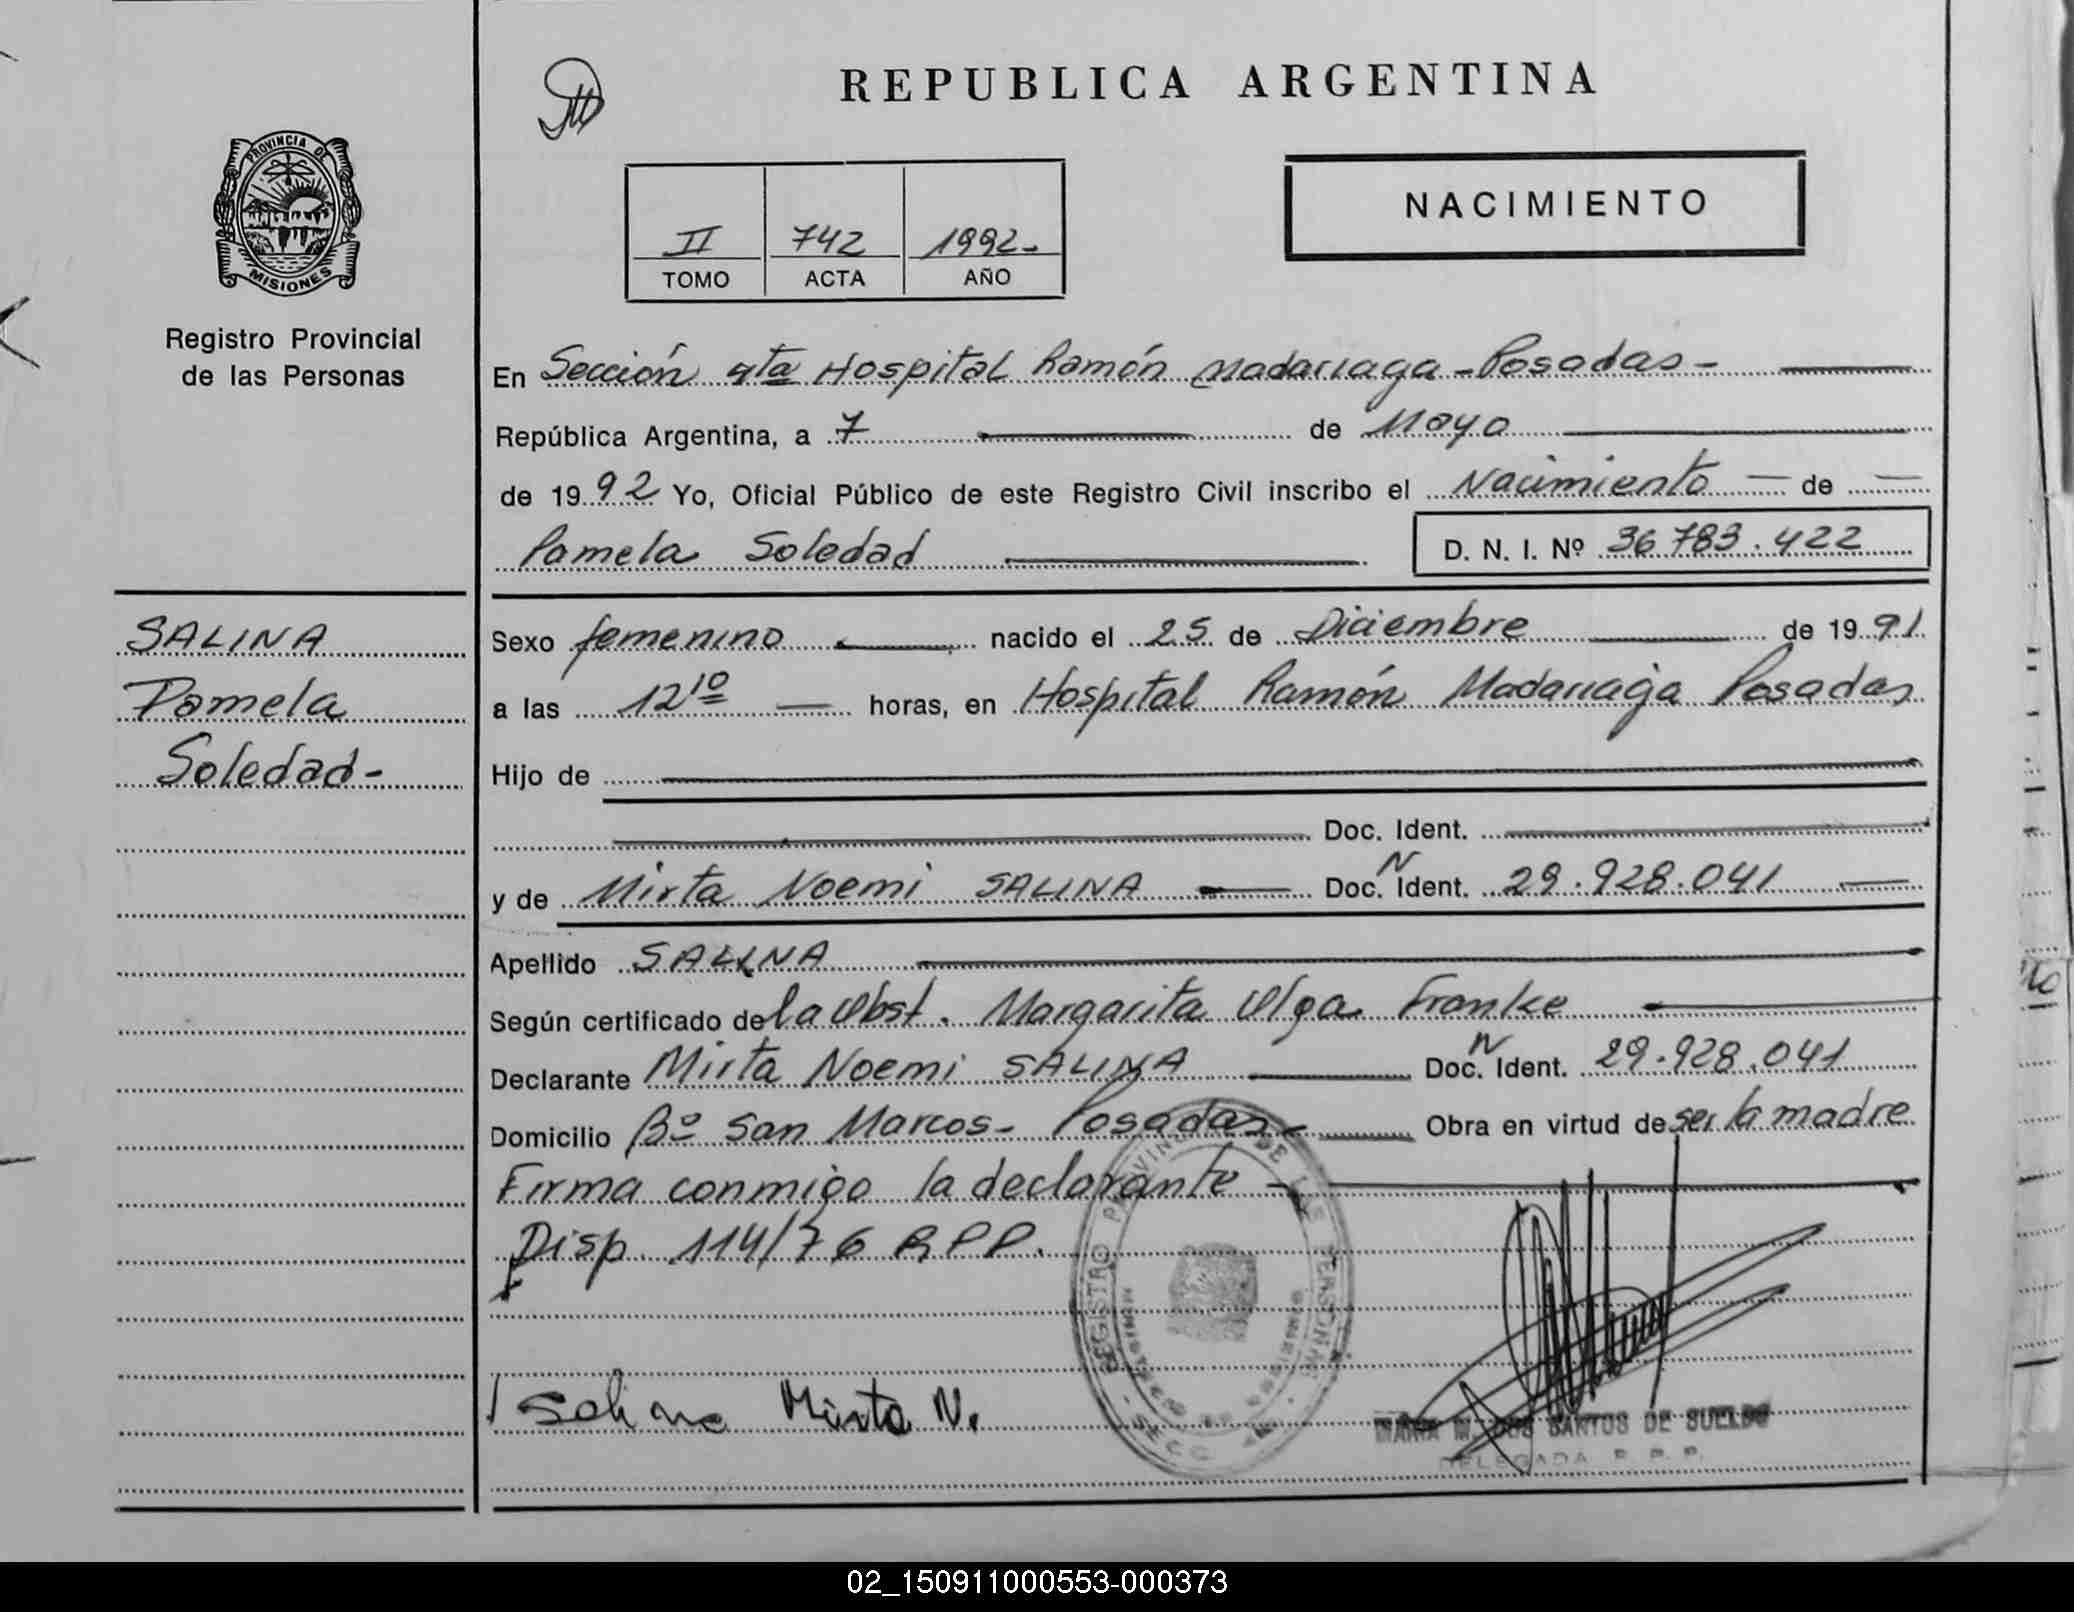 REPUBLICA ARGENTINA
PROVINCIA DE
MISIONES
Registro Provincial
de las Personas
II 742 1992-
TOMO ACTA AÑO
NACIMIENTO
En Sección 4ta Hospital Ramón Madariaga - Posadas -
República Argentina, a 7 de Mayo
de 1992 Yo, Oficial Público de este Registro Civil inscribo el Nacimiento — de —
Pamela Soledad D. N. I. Nº 36.783.422
SALINA
Pamela
Soledad-
Sexo femenino nacido el 25 de Diciembre de 1991
a las 12 10 — horas, en Hospital Ramón Madariaga Posadas
Hijo de
Doc. Ident.
y de Mirta Noemi SALINA Doc. N Ident. 29.928.041
Apellido SALINA
Según certificado de la Obst. Margarita Olga Franke
Declarante Mirta Noemi SALINA Doc. N Ident. 29.928.041
Domicilio Bº San Marcos - Posadas - Obra en virtud de ser la madre
Firma conmigo la declarante -
Disp. 114/76 RPP.
Salina Mirta N.
REGISTRO PROVINCIAL DE LAS PERSONAS
MARIA M. DOS SANTOS DE SUELDO
DELEGADA R. P. P.
02_150911000553-000373